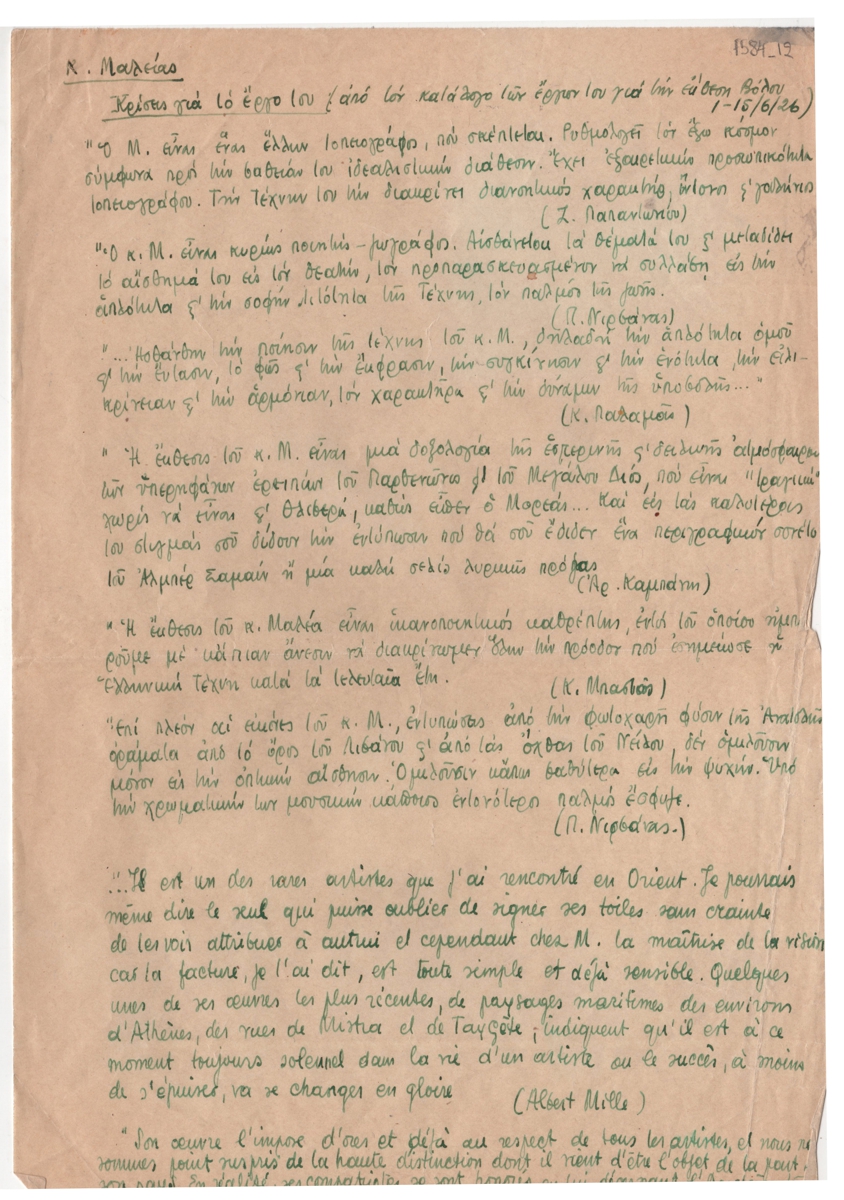 1584_12
Κ. Μαλέας
Κρίσεις γιά τό ἔργο του (ἀπό τόν κατάλογο τῶν ἔργων του γιά τήν ἔκθεση Βόλου
1-15/6/26)
"Ὁ Μ. εἶναι ἕνας ἕλλην τοπειογράφος, πού σκέπτεται. Ρυθμολογεῖ τόν ἔξω κόσμον
σύμφωνα πρός τήν βαθεῖάν του ἰδεαλιστικήν διάθεσιν. Ἔχει ἐξαιρετικήν προσωπικότητα
τοπειογράφου. Τήν Τέχνην του τήν διακρίνει διανοητικός χαρακτήρ, ἔντονος ϛ' γαλήνιος
(Ζ. Παπαντωνίου)
"Ὁ κ. Μ. εἶναι κυρίως ποιητής-ζωγράφος. Αἰσθάνεται τά θέματά του ϛ' μεταδίδει
τό αἴσθημά του εἰς τόν θεατήν, τόν προπαρασκευασμένον νά συλλάβῃ εἰς τήν
ἁπλότητα ϛ' τήν σοφήν λιτότητα τῆς Τέχνης, τόν παλμόν τῆς ζωῆς.
(Π. Νιρβάνας)
"...Ἠσθάνθην τήν ποίησιν τῆς τέχνης τοῦ κ. Μ., δηλαδή τήν ἁπλότητα ὁμοῦ
ϛ' τήν ἔντασιν, τό φῶς ϛ' τήν ἔκφρασιν, τήν συγκίνησιν ϛ' τήν ἑνότητα, τήν εἰλι-
κρίνειαν ϛ' τήν ἁρμονίαν, τόν χαρακτῆρα ϛ' τήν δύναμιν τῆς ὑποβολῆς..."
(Κ. Παλαμᾶς)
"Ἡ ἔκθεσις τοῦ κ. Μ. εἶναι μιά δοξολογία τῆς ἑσπερινῆς ϛ' δειλινῆς ἀτμόσφαιρας
τῶν ὑπερηφάνων ἐρειπίων τοῦ Παρθενῶνος ϛ' τοῦ Μεγάλου Διός, πού εἶναι "τραγικά"
χωρίς νά εἶναι ϛ' θλιβερά, καθώς εἶπεν ὁ Μορεάς... Καί εἰς τάς καλυτέρας
του στιγμάς σοῦ δίδουν τήν ἐντύπωσιν πού θά σοῦ ἔδιδεν ἕνα περιγραφικόν σονέτο
τοῦ Ἀλμπέρ Σαμαίν ἤ μία καλή σελίς λυρικῆς πρόζας
(Ἀρ. Καμπάνης)
"Ἡ ἔκθεσις τοῦ κ. Μαλέα εἶναι ἱκανοποιητικός καθρέπτης, ἐντός τοῦ ὁποίου ἠμπο
ροῦμε μέ κάποιαν ἄνεσιν νά διακρίνωμεν ὅλην τήν πρόοδον πού ἐσημείωσε ἡ
Ἑλληνική Τέχνη κατά τά τελευταῖα ἔτη.
(Κ. Μπαστιᾶς)
"Ἐπί πλέον αἱ εἰκόνες τοῦ κ. Μ., ἐντυπώσεις ἀπό τήν φωτοχαρῆ φύσιν τῆς Ἀνατολῆς
ὁράματα ἀπό τό ὄρος τοῦ Λιβάνου ϛ' ἀπό τάς ὄχθας τοῦ Νείλου, δέν ὁμιλοῦσιν
μόνον εἰς τήν ὀπτικήν αἴσθησιν. Ὁμιλοῦσιν κάπως βαθύτερα εἰς τήν ψυχήν. Ὑπό
τήν χρωματικήν των μουσικήν κάποιος ἐντονότερος παλμός ἔσφυζε.
(Π. Νιρβάνας.)
"..Il est un des rares artistes que j'ai rencontré en Orient. Je pourrais
même dire le seul qui puisse oublier de signer ses toiles sans crainte
de les voir attribuer à autrui et cependant chez M. la maîtrise de la vision
car la facture, je l'ai dit, est toute simple et déjà sensible. Quelques
unes de ses œuvres les plus récentes, de paysages maritimes des environs
d'Athènes, des vues de Mistra et de Taygète, indiquent qu'il est à ce
moment toujours solennel dans la vie d'un artiste ou le succès, à moins
de s'épuiser, va se changer en gloire
(Albert Mille)
"Son œuvre l'impose d'ores et déjà au respect de tous les artistes, et nous ne
sommes point surpris de la haute distinction dont il vient d'être l'objet de la part
son pays. En réalité, ses compatriotes se sont honorés